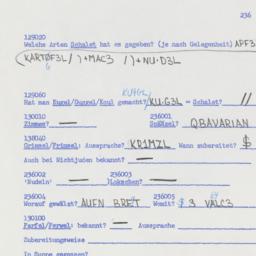 236
129020
Welche Arten Schalet hat es gegeben? (je nach Gelegenheit) APF3
(KARTOF3L/)+MAC3 /)+NU·D3L
129060 KU4GL
Hat man Kugel/Gunnel/Koul gemacht? KU.G3L = Schalet? //
130010 236001
Zimmes? — QBAVARIAN
138040
Grimsel/Frimsel: Aussprache KR1MZL Wann zubereitet? $
Auch bei Nichtjuden bekannt? —
236002 236003
'Nudeln' — Lokschen? —
236004 236005
Worauf gewälgt? AUFN BRET Womit? $ 3 VALC3
130100
Farfel/Ferwel: bekannt? — Aussprache
Zubereitungsweise
In Suppe gegessen?